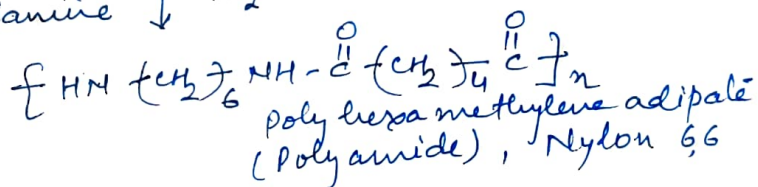 amine ↓
{ HN -(CH2)-6 NH - C(=O) -(CH2)-4 C(=O) }n
poly hexa methylene adipate
(Polyamide), Nylon 6,6